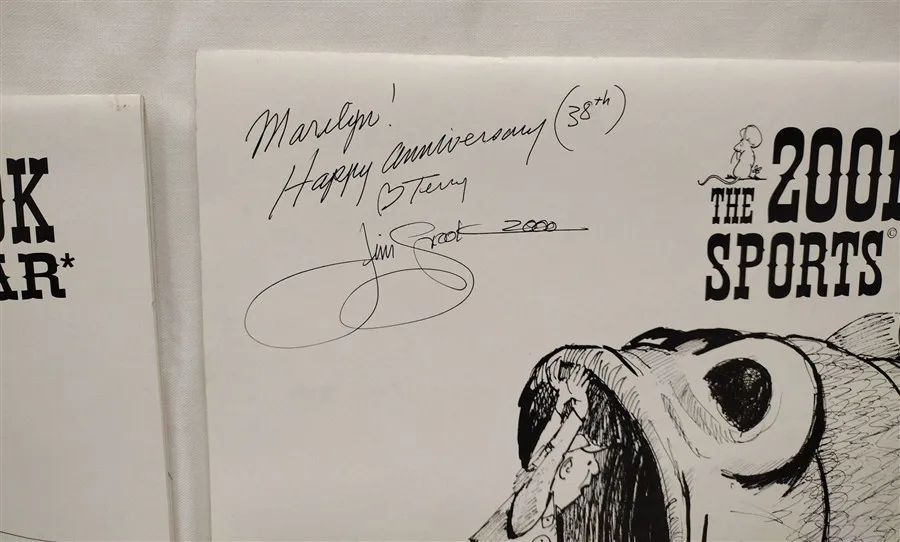 OK
AR*
Marilyn!
Happy anniversary (38th)
Terry
Jim 2000
THE 2001
SPORTS©